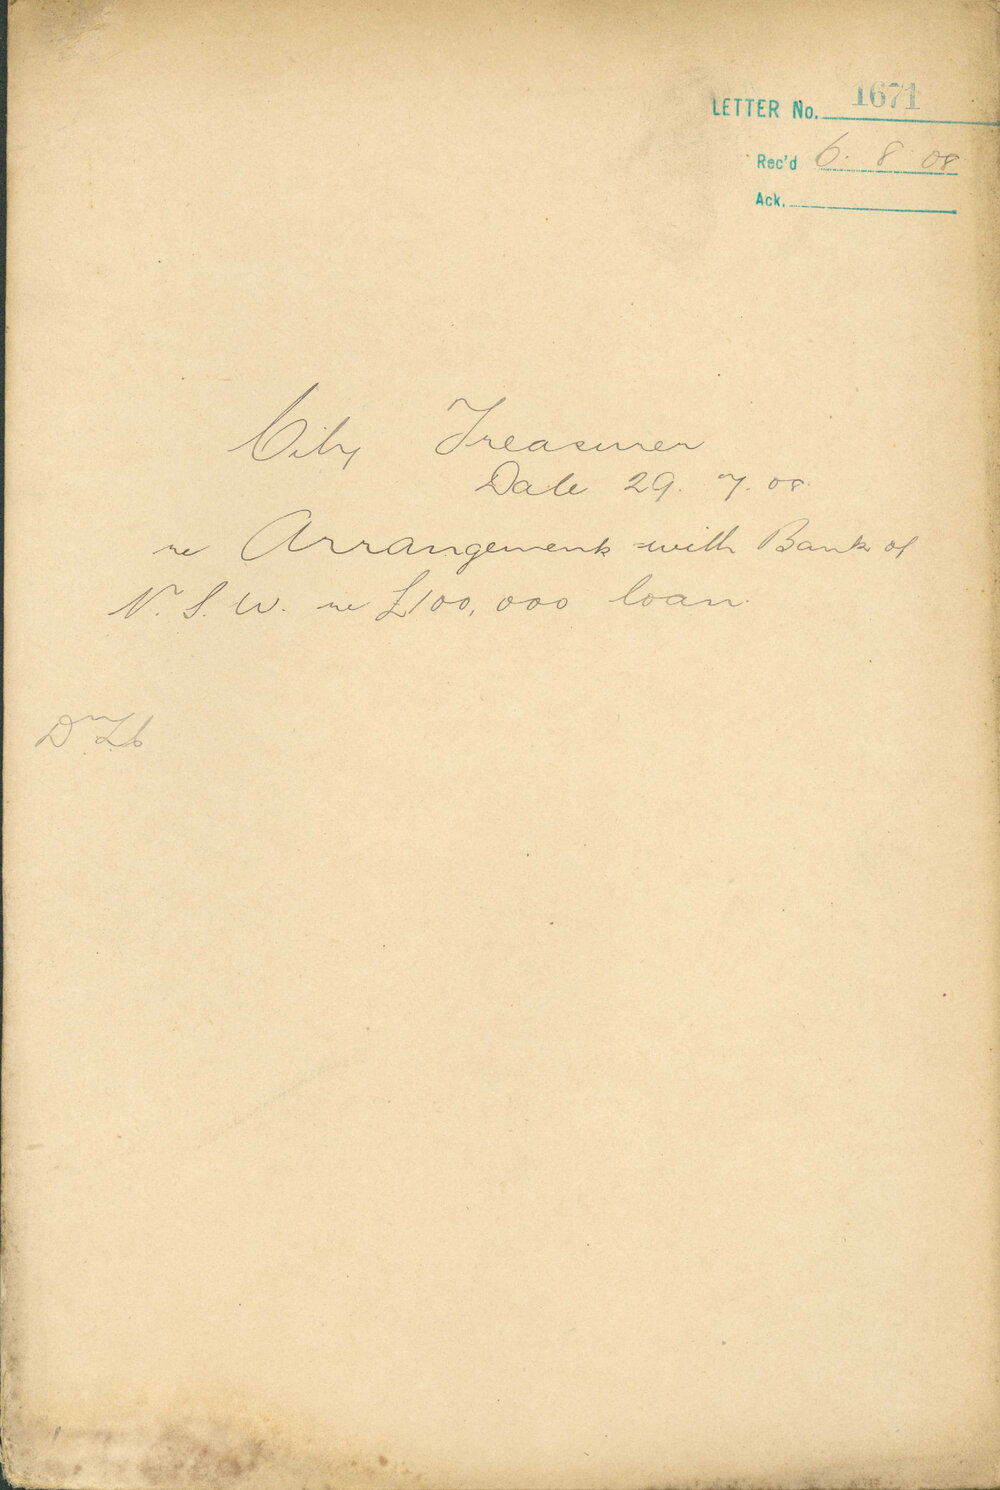 LETTER No. 1671
Rec'd 6. 8 08
Ack.
City Treasurer
Date 29. 7. 08
re Arrangement with Bank of
N. S. W. re £100,000 loan.